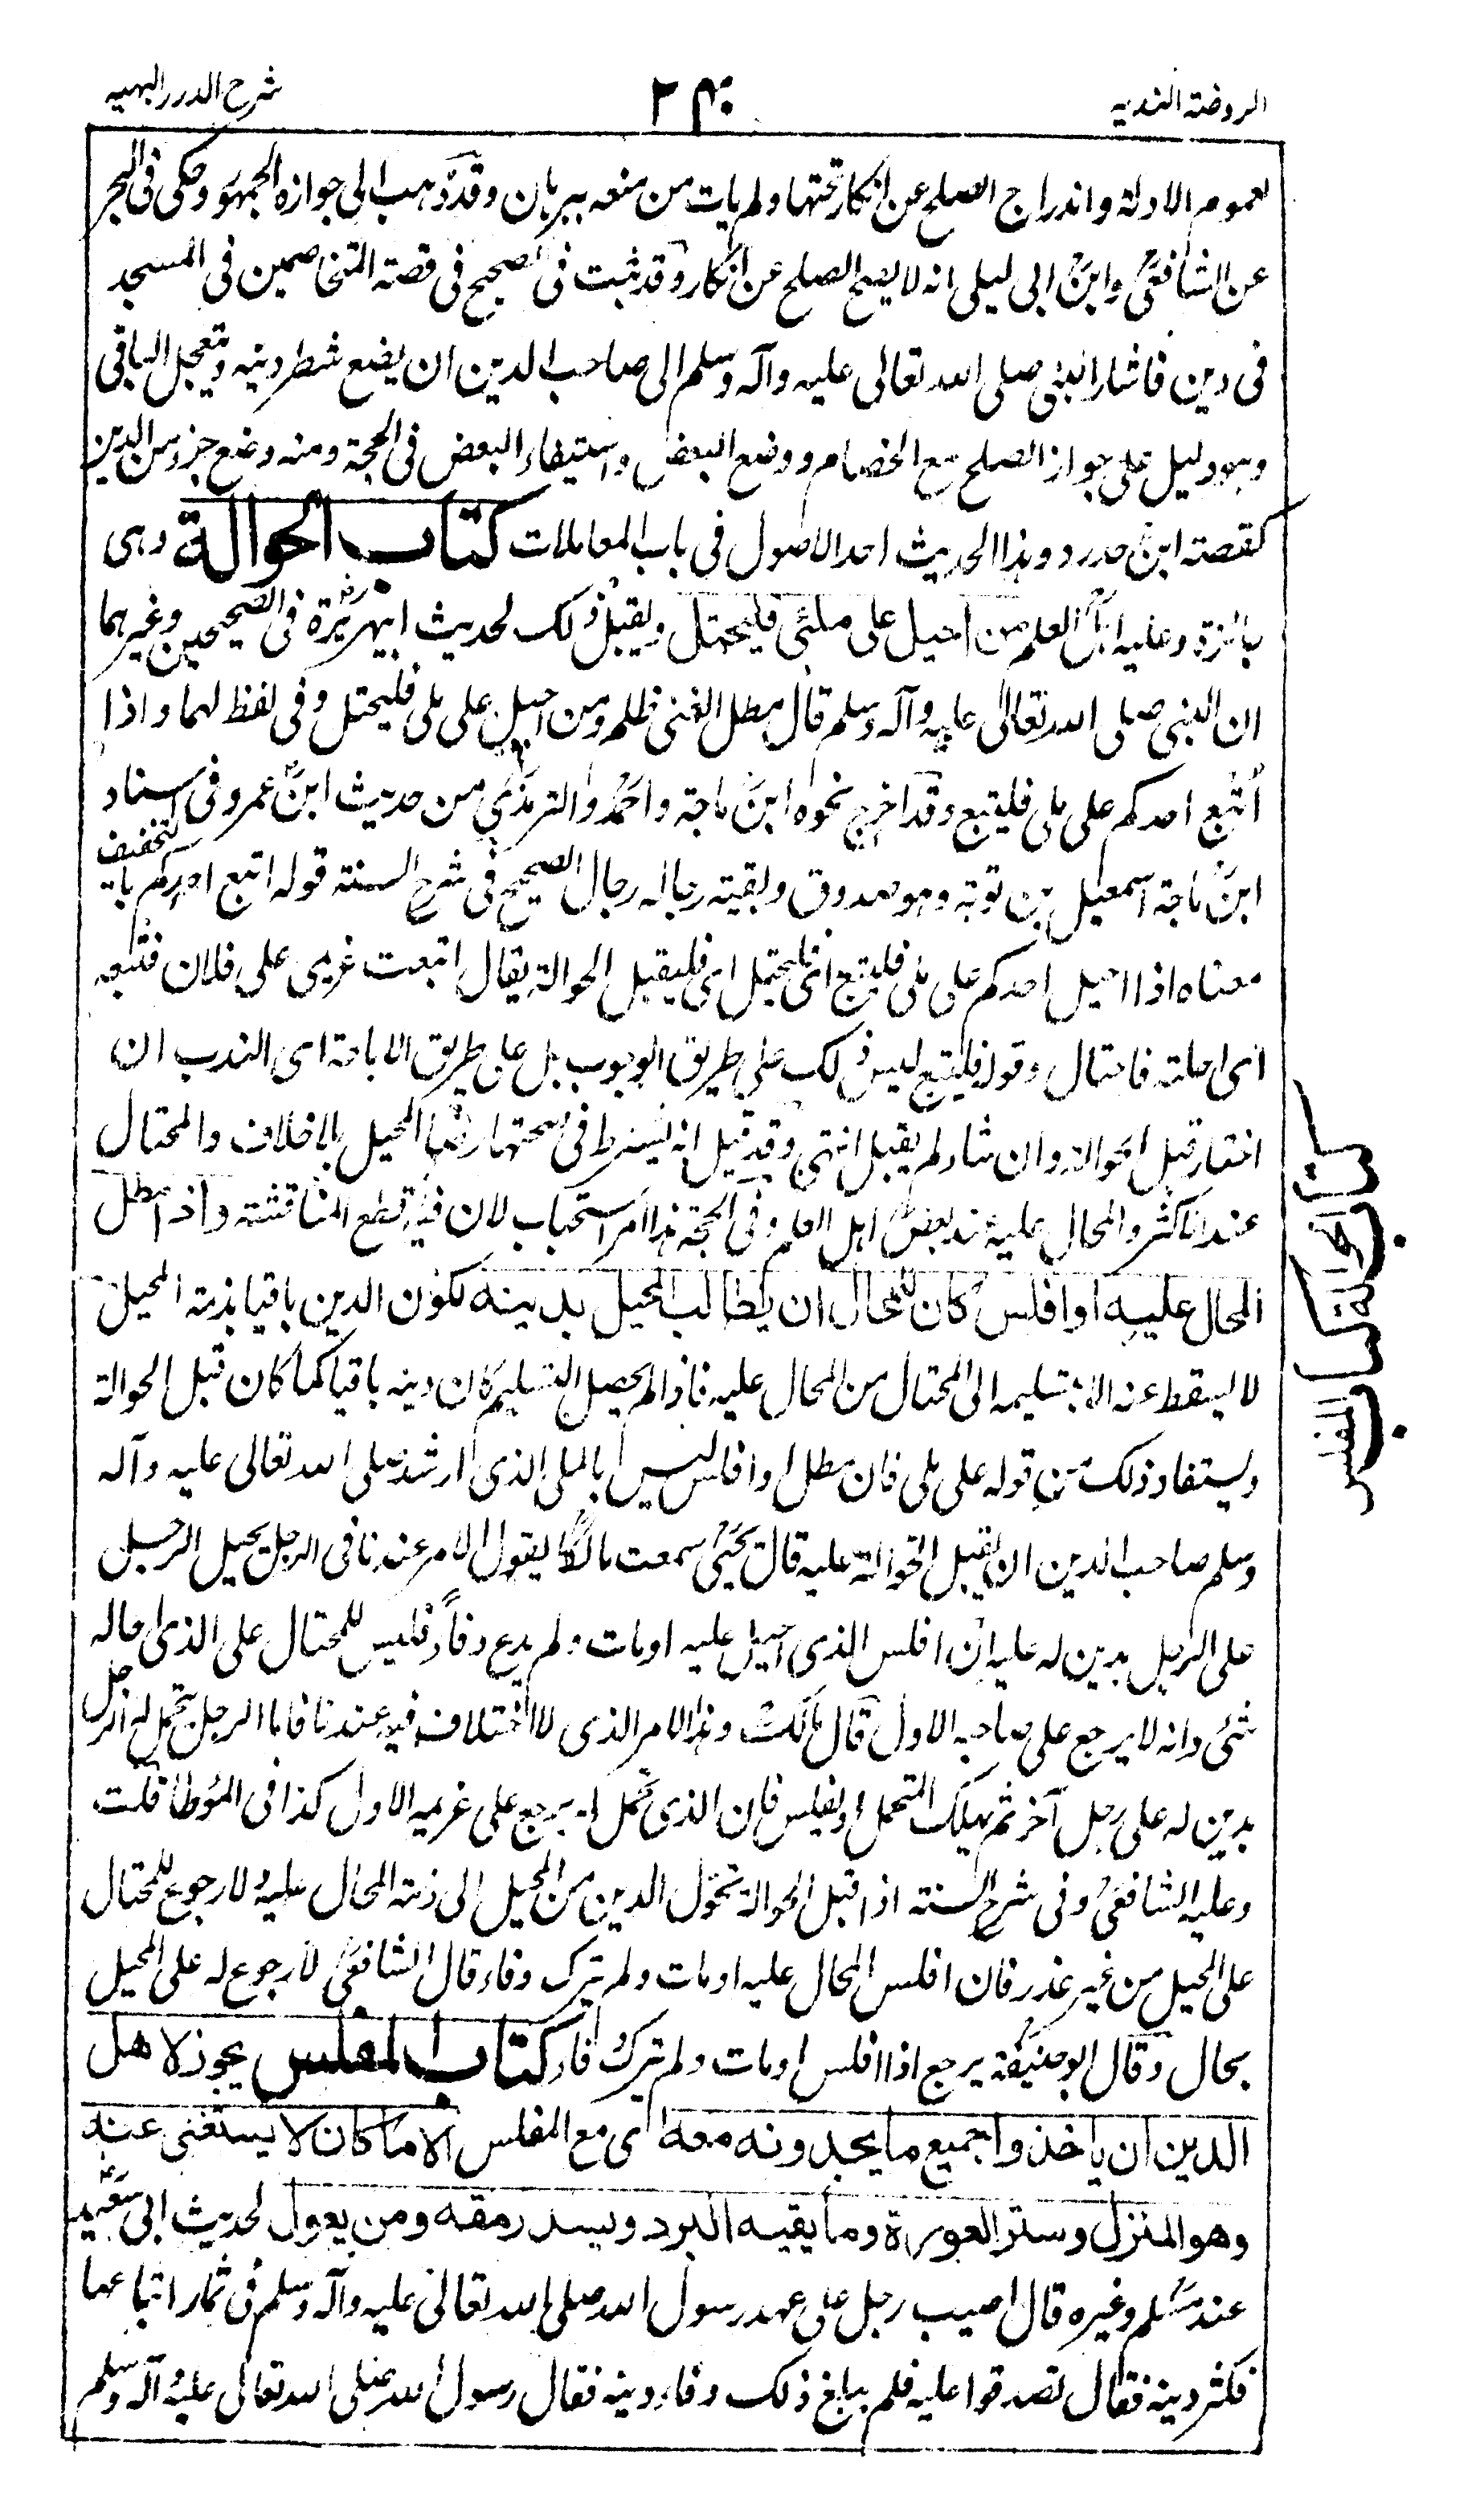 الروضة الندية
٢٤٠
شرح الدرر البهية
لعموم الادلة واندراج الصلح عن انكار تحتها ولم يات من منعه ببرهان وقد ذهب الى جوازه الجمهور وحكى فى البحر
عن الشافعى وابن ابى ليلى انه لا يصح الصلح عن انكار وقد ثبت فى الصحيح فى قصة المتخاصمين فى المسجد
فى دين فاشار النبى صلى الله تعالى عليه وآله وسلم الى صاحب الدين ان يضع شطر دينه ويتعجل الباقى
وهو دليل على جواز الصلح مع الخصام ووضع البعض واستيفاء البعض فى الحجة ومنه وضع جزو من الدين
كقصة ابن حدرد وهذا الحديث احد الاصول فى باب المعاملات كتاب الحوالة وهى
جائزة وعليه اهل العلم من احيل على ملئى فليحتمل ويقبل ذلك لحديث ابيهريرة رض فى الصحيحين وغيرهما
ان النبى صلى الله تعالى عليه وآله وسلم قال مطل الغنى ظلم ومن احيل على ملى فليحتل وفى لفظ لهما واذا
اُتبع احدكم على ملى فليتبع وقد اخرج نحوه ابن ماجة واحمد والترمذى من حديث ابن عمر وفى اسناد
ابن ماجة اسمعيل بن توبة وهو صدوق وبقية رجاله رجال الصحيح فى شرح السنة قوله اتبع احدكم بالتخفيف
معناه اذا احيل احدكم على ملى فليتبع اى فليحتل اى فليقبل الحوالة يقال اتبعت غريمى على فلان فتبعه
اى احلته فاحتال وقوله فليتبع ليس ذلك على طريق الوجوب بل على طريق الاباحة اى الندب ان
اختار قبل الحوالة وان شاء لم يقبل انتهى وقد قيل انه يشترط فى صحتها رضا المحيل بلا خلاف والمحتال
عند الاكثر والمحال عليه عند بعض اهل العلم وفى الحجة هذا امر استحباب لان فيه قطع المناقشة واذا مطل
المحال عليه او افلس كان للمحال ان يطالب المحيل بدينه لكون الدين باقيا بذمة المحيل
لا يسقط عنه الا بتسليمه الى المحتال من المحال عليه فاذا لم يحصل التسليم كان دينه باقيا كما كان قبل الحوالة
ويستفاد ذلك من قوله على ملى فان مطل او افلس ليس بالملى الذى ارشد صلى الله تعالى عليه وآله
وسلم صاحب الدين ان يقبل الحوالة عليه قال يحيى سمعت مالكا يقول الامر عندنا فى الرجل يحيل الرجل
على الرجل بدين له عليه ان افلس الذى احيل عليه او مات ولم يدع وفاءً فليس للمحتال على الذى احاله
شئ وانه لا يرجع على صاحبه الاول قال مالك وهذا الامر الذى لا اختلاف فيه عندنا فاما الرجل يتحمل له الرجل
بدين له على رجل آخر ثم يهلك المتحمل او يفلس فان الذى تحمل له يرجع على غريمه الاول كذا فى المؤطا قلت
وعليه الشافعى وفى شرح السنة اذا قبل الحوالة تحول الدين من المحيل الى ذمة المحال عليه ولا رجوع للمحتال
على المحيل من غير عذر فان افلس المحال عليه او مات ولم يترك وفاء قال الشافعى لا رجوع له على المحيل
بحال وقال ابو حنيفة يرجع اذا افلس او مات ولم يترك وفاء كتاب المفلس يجوز لاهل
الدين ان ياخذوا جميع ما يجدونه معه اى مع المفلس الا ما كان لا يستغنى عنه
وهو المنزل وستر العورة وما يقيه البرد ويسد رمقه ومن يعول لحديث ابى سعيد
عند مسلم وغيره قال اصيب رجل على عهد رسول الله صلى الله تعالى عليه وآله وسلم فى ثمار ابتاعها
فكثر دينه فقال تصدقوا عليه فلم يبلغ ذلك وفاء دينه فقال رسول الله صلى الله تعالى عليه وآله وسلم
كتاب الحوالة كتاب المفلس